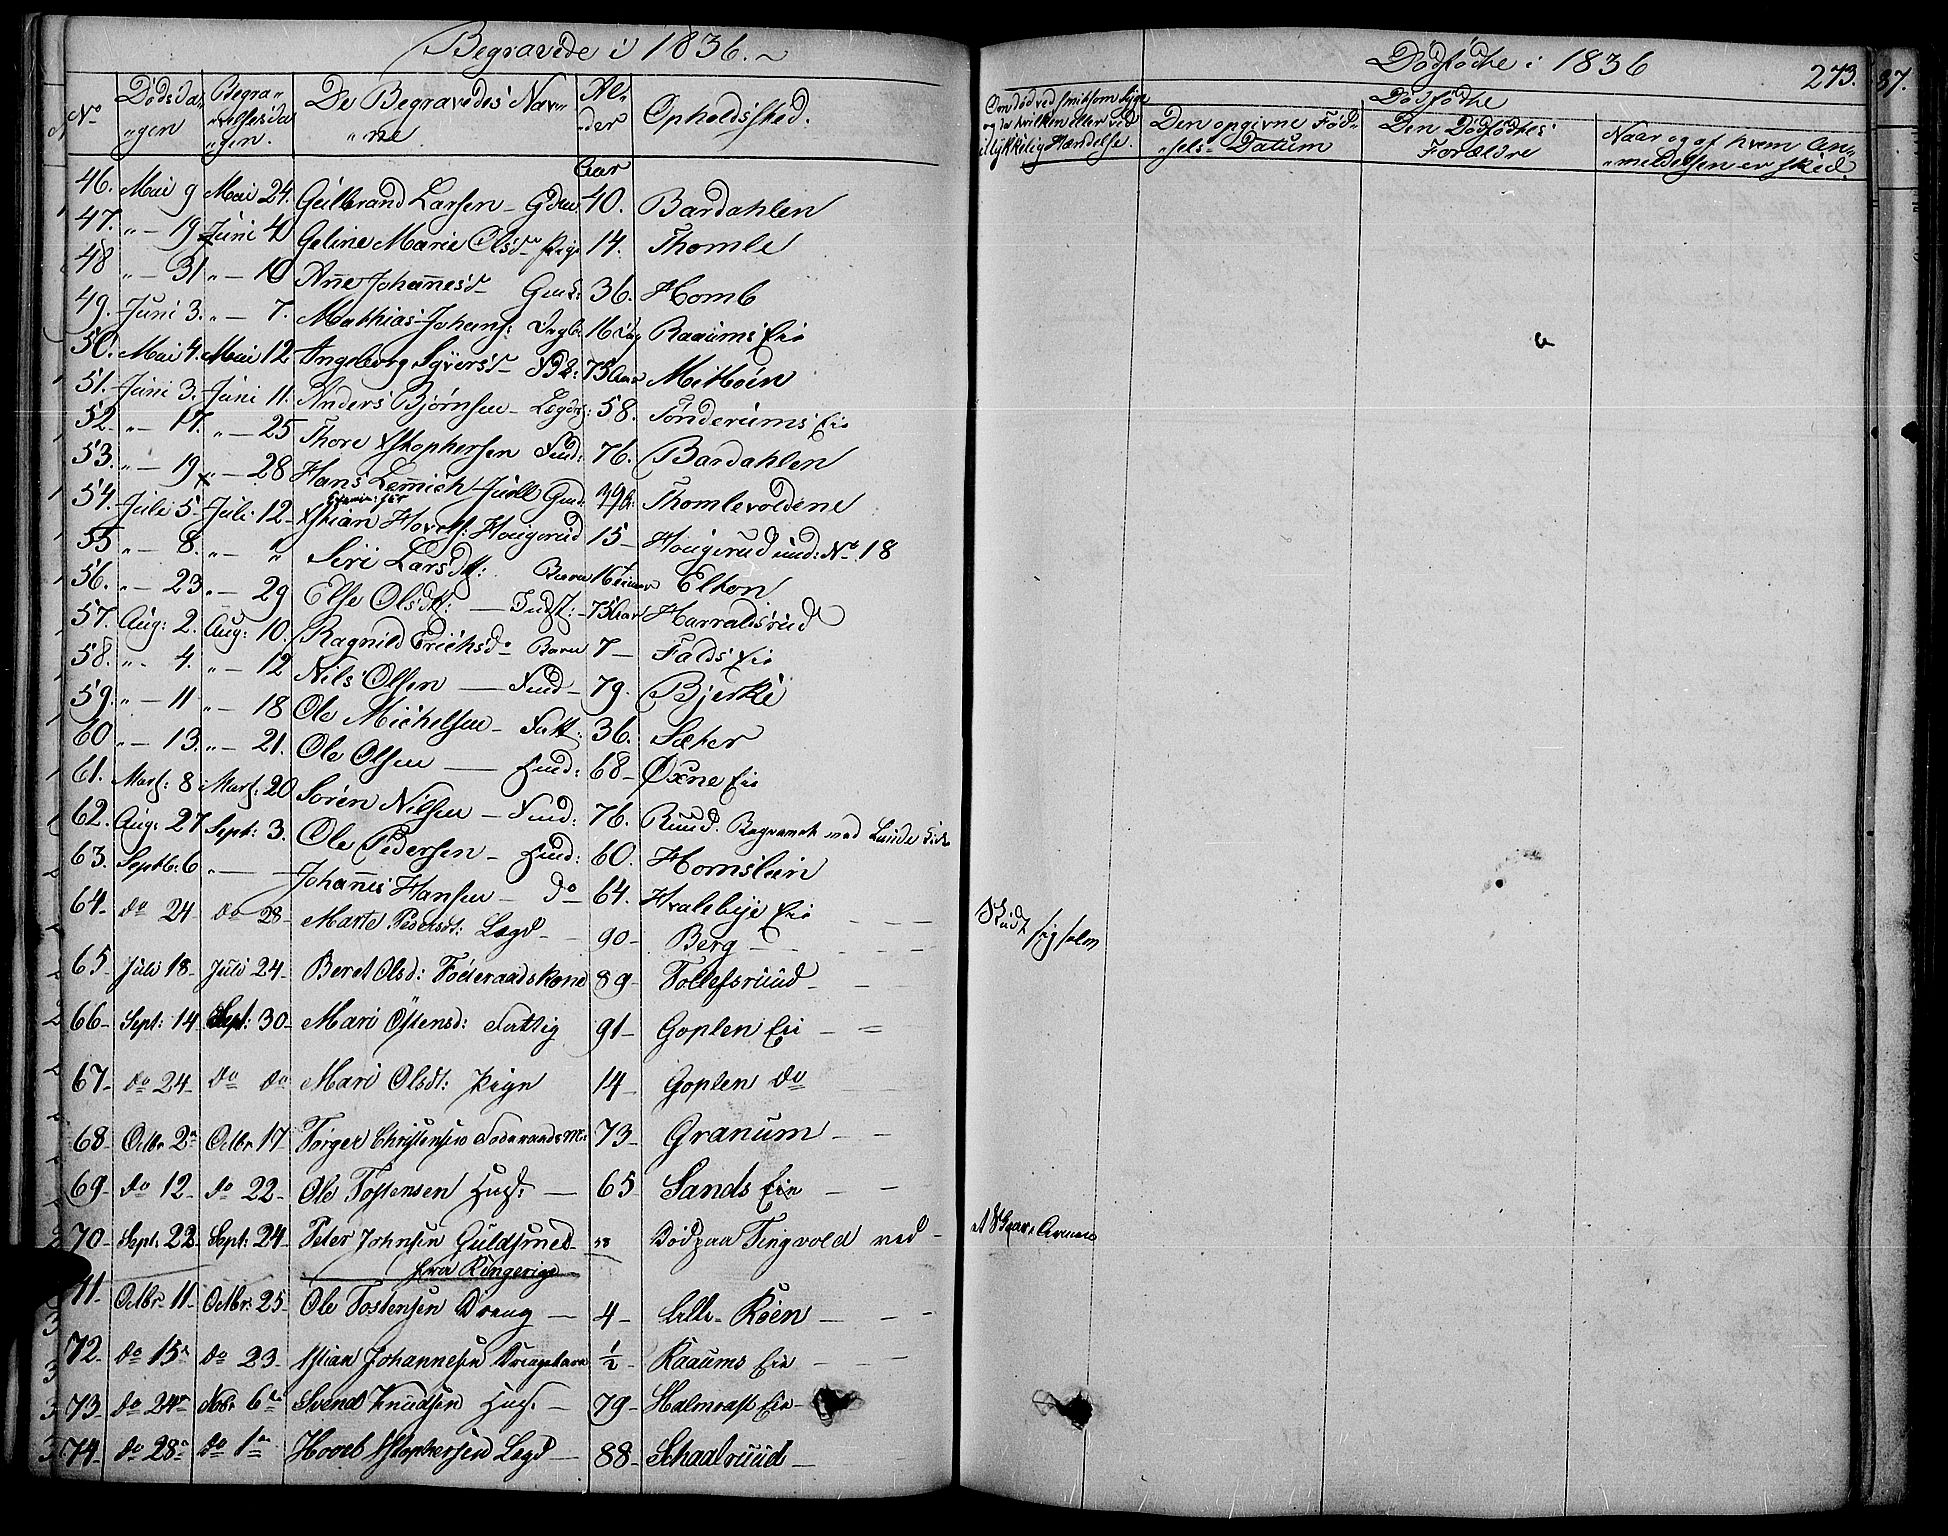 Begravede i 1836.
No Dødsdagen Begravelsesdagen. De Begravedes Navne Alder Opholdssted.
Aar
46. Mai 9 Mai 24. Gulbrand Larsen - Gdm 40. Bardahlen
47. " - 19 Juni 4 Goline Marie Olsd. Pige 14. Thomle
48 " - 31 " - 10 Anne Johannesd 36. Homb
49. Juni 3. " - 7. Mathias Johans: 16 Dag Raaums Eie
50. Mai 4. Mai 12 Ingeborg Syversd 75 Aar Mitbøen
51. Juni 3. Juni 11. Anders Bjørnsen - Lægds: 58. Sønderums Eie
52. " - 17. " - 25 Thore Xstophersen 76. Bardahlen
53. " - 19 " - 28 Hans Lemich Juell Thomlevoldene
54. Juli 5 - Juli 12 - Xstian Hovels: Hougerud 15 - Hougerud und: No 18
55 " - 8. " - " Siri Larsdt: Barn 16 Elton
56. " - 23 " - 29 Else Olsdt: - Indst: - 75 Aar Harraldsrud
57. Aug: 2. Aug: 10. Ragnild Erichsd - Barn 7 - Falds Eie
58. " - 4. " - 12 Nils Olsen - 79. Bjerke
59. " - 11 " - 18 Ole Michelsen - Fatt: 36. Sæter
60 " - 13. " - 21. Ole Olsen - 68 - Øxne Eie
61. Marts: 8 Marts: 20 Soren Nilsen - 76. Ruud. Begravet ved Lunde
62. Aug: 27 Sept: 3. Ole Pedersen - 60. Hornslien
63. Septb: 6 " - Johannes Hansen - do 64. Hvalebye Eie
64. do 24 do 28 - Marte Pedersdt: Legd - 90 - Berg - Skudt sig selv
65 - Juli 18 - Juli 24 - Beret Olsd: Føderaadskone 89 - Tollefsruud -
66 - Sept: 14 Sept: 30 - Mari Østensd: Fattig 91 - Goplen Eie -
67 - do 24 - do do Mari Olsdt: Pige 14 - Goplen do
68 - Octbr 2 Octbr 17 Torger Christensen Føderaadsm: 73 - Granum -
69 - do 12 - do 22 - Ole Tostensen Husf: - 65 Sands Eie -
70 - Sept: 22 - Sept: 24 - Peter Johnsen Guldsmed Død paa Tingvold ved -
fra Ringerige
71. Octbr 11 - Octbr 25 - Ole Tostensen Dreng - 4 - Lille - Røen -
72 - do 15 do 23 - Xstian Johannesen Drengebarn ½ - Raaums Eie -
73 - do 24 Nov. 6 Svend Knudsen Husf. - 79 - Halmrast Eie -
74 - do 28 do 1 Hovel Xstophersen Legd - 88 - Schaalruud -
Dødfødte i 1836
273.
87.
Om død ved smitsom Syge og da hvilken eller ved ulykkelig Hændelse.
Dødfødte
Den opgivne Fødsels Datum
Den Dødfødtes Forældre
Naar og af hvem Anmeldelsen er skeed.